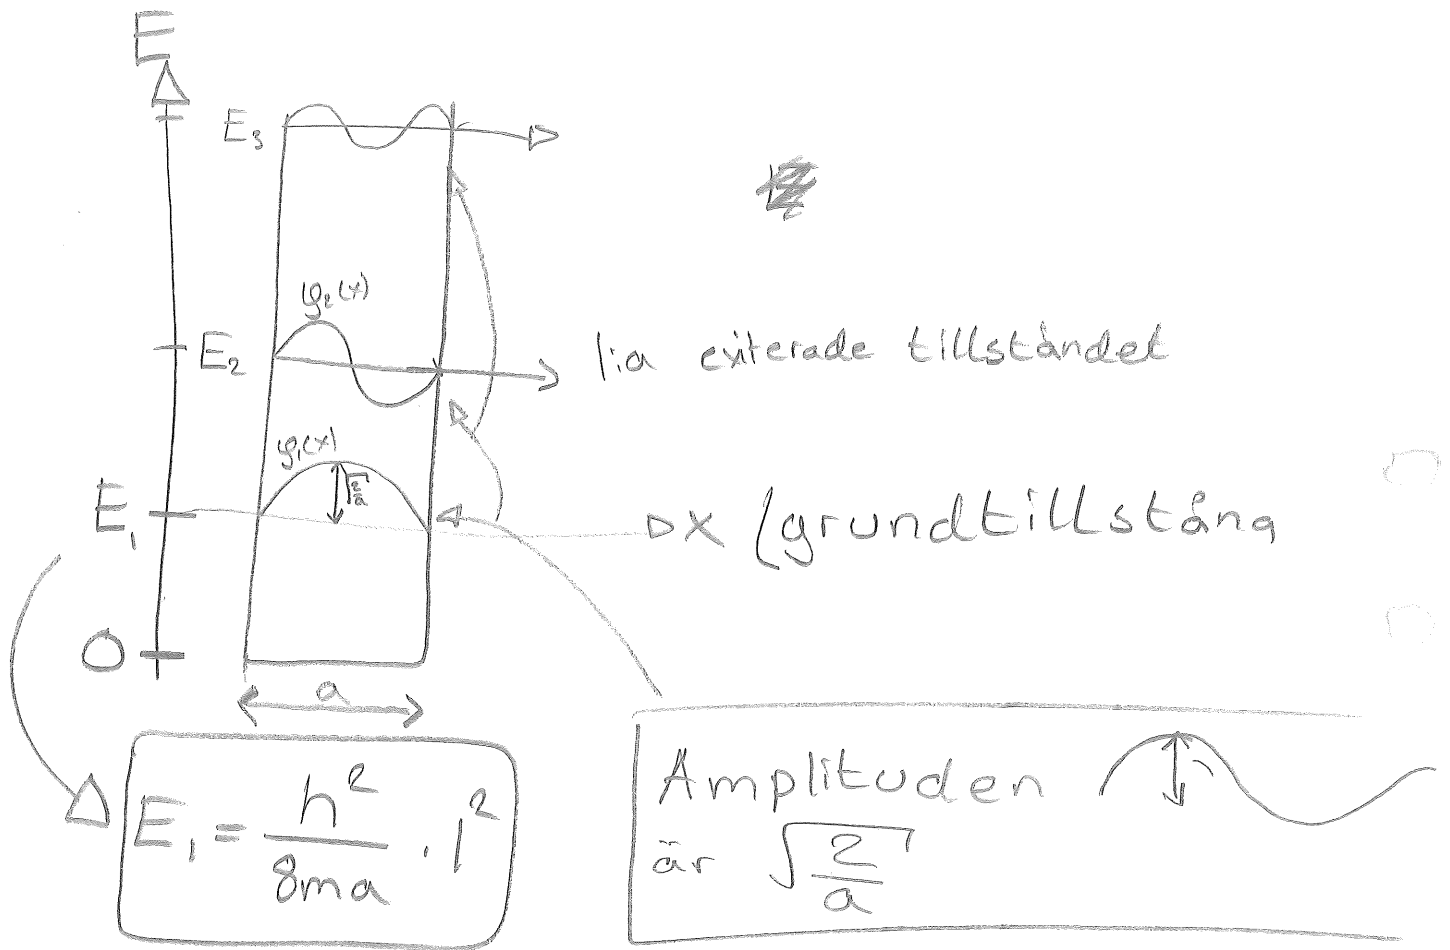 E
E₃
φ₂(x)
E₂
1:a exiterade tillståndet
φ₁(x)
√2/a
E₁
x (grundtillstån
0
a
E₁ = h²/8ma · 1²
Amplituden
är √2/a